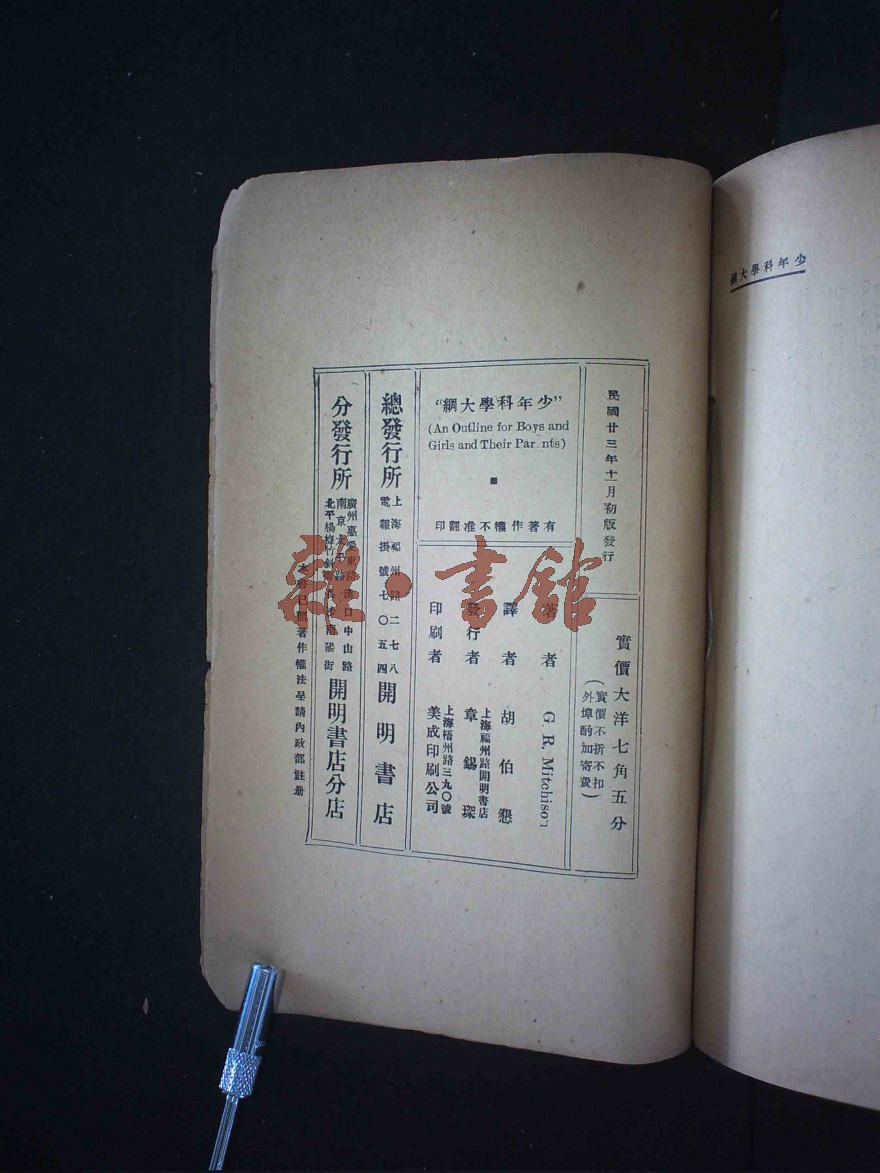 少年科學大綱
民國廿三年十一月初版發行
實價大洋七角五分
(實價不折不扣
外埠酌加寄費)
"少年科學大綱"
(An Outline for Boys and
Girls and Their Par nts)
有著作權不准翻印
著者 G. R. Mitchison
譯者 胡伯懇
發行者 章錫琛
上海福州路開明書店
印刷者 美成印刷公司
上海梧州路三九〇號
總發行所 上海福州路二七八
電報掛號七〇五四
開明書店
分發行所 廣州惠愛東路 漢口中山路
南京太平路 長沙南陽街
北平楊梅竹斜街
開明書店分店
本書已照著作權法呈請內政部註册
雜·書館